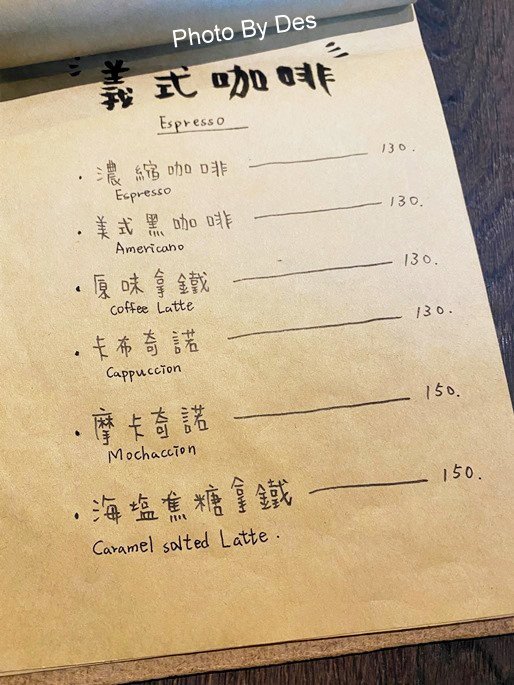 Photo By Des
義式咖啡
Espresso
· 濃縮咖啡 130.
Espresso
· 美式黑咖啡 130.
Americano
· 原味拿鐵 130.
Coffee Latte
· 卡布奇諾 130.
Cappuccion
· 摩卡奇諾 150.
Mochaccion
· 海塩焦糖拿鐵 150.
Caramel salted Latte.